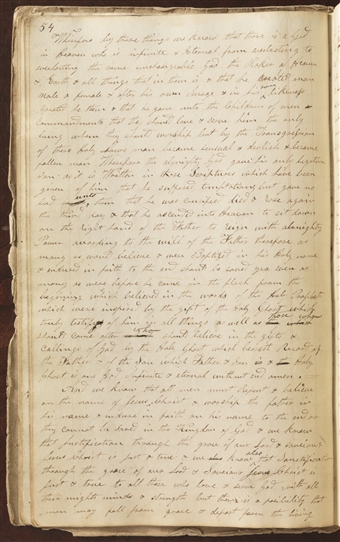 54
Wherefore by these things we know that there is a God
in heaven who is infinite & eternal from everlasting to
everlasting the same unchangeable God the maker of Heaven
& Earth & all things that in them is & that he created man
male & female & after his own image & in his likeness
created he them & that he gave unto the children of men
commandments that they should love & serve him the only
being whom they should worship but by the Transgression
of these holy laws man became sensual & devilish & became
fallen man Wherefore the almighty God gave his only begotten
Son as it is Written in those Scriptures which have been
given of him that he suffered temptations but gave no
heed unto them that he was crucified died & rose again
the third day & that he ascended into Heaven to sit down
on the right hand of the Father to reign with almighty
Power according to the will of the Father therefore as
many as would believe & were Baptized in his Holy name
& endured in faith to the end should be saved yea even as
many as were before he came in the flesh from the
beginning which believed in the words of the Holy Prophets
which were inspired by the gift of the Holy Ghost which
truly testify of him in all things as well as those who
should come after who should believe in the gifts &
callings of God by the Holy Ghost which beareth Record of
the Father & of the Son which Father & Son & the Holy
Ghost is one God infinite & eternal without end amen
And we know that all men must repent & believe
on the name of Jesus Christ & worship the father in
his name & endure in faith on his name to the end or
they cannot be saved in the Kingdom of God & we know
that Justification through the grace of our Lord & Saviour
Jesus Christ is just & true & we also know that Sanctification
through the grace of our Lord & Saviour Jesus Christ is
just & true to all those who love & serve God with all
their mights minds & strength but there is a possibility that
men may fall from grace & depart from the living